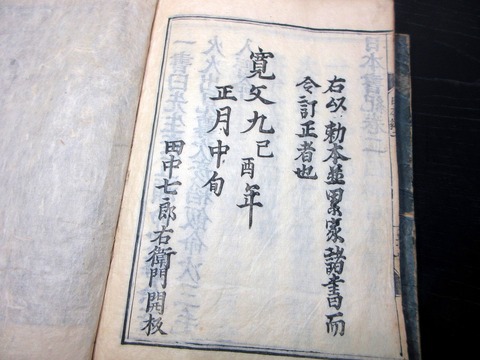 右以勅本並累家諸書而
令訂正者也
寛文九己酉年
正月中旬
田中七郎右衛門開板